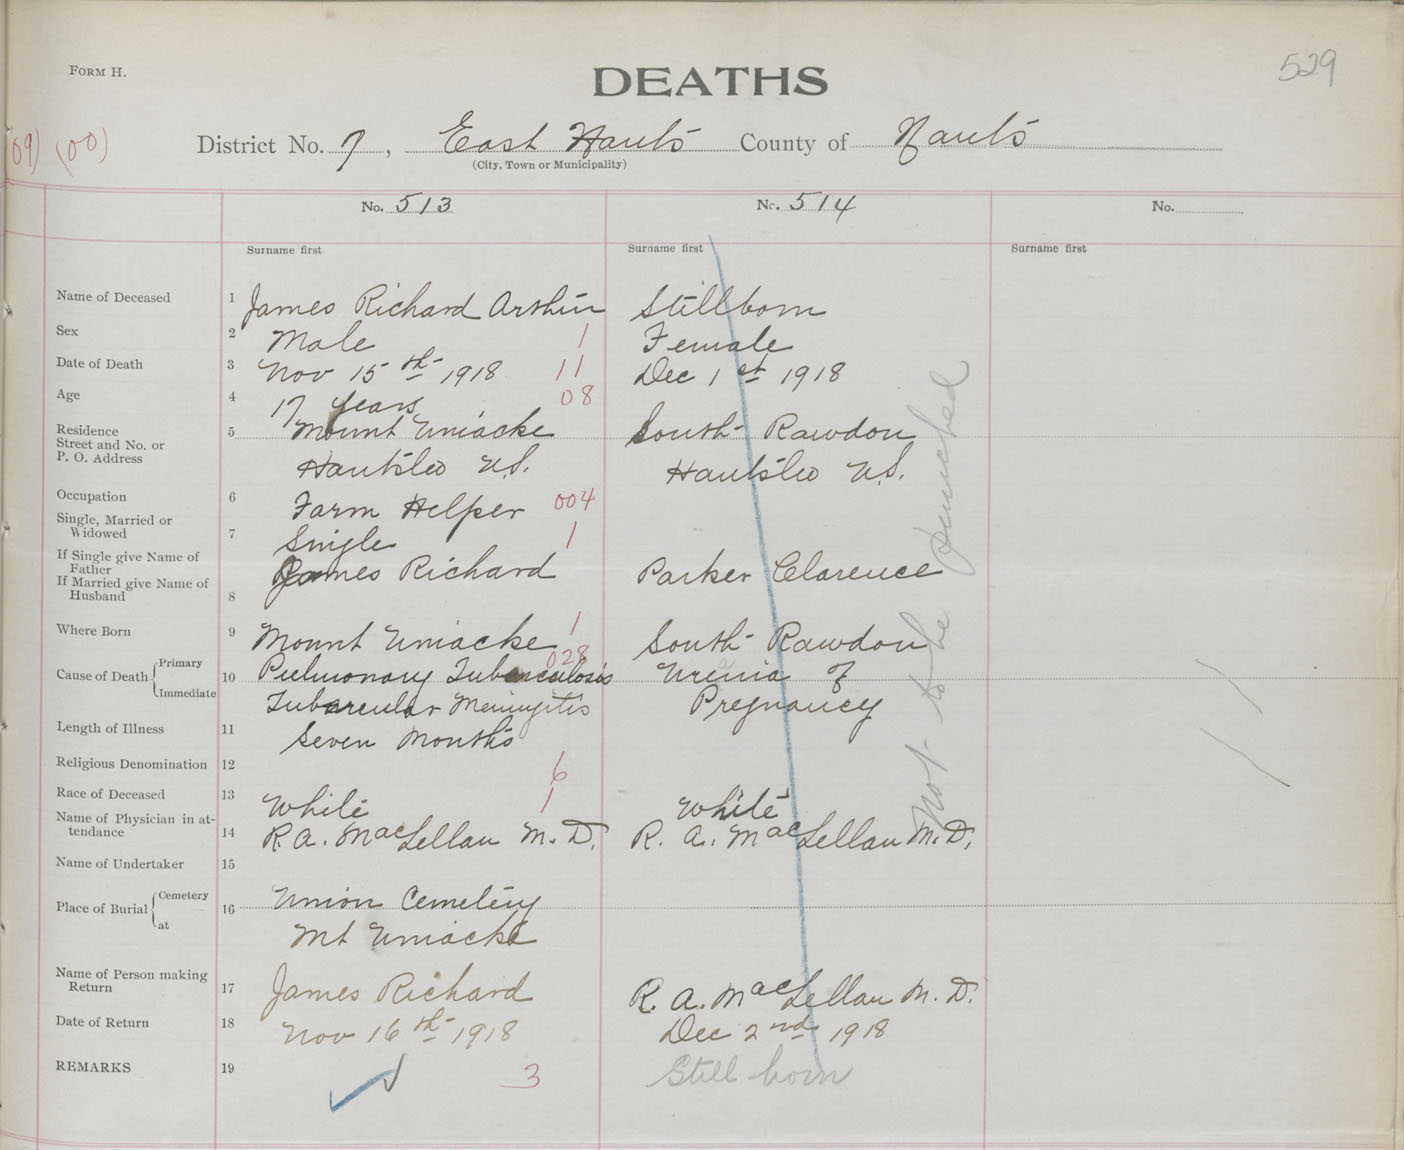 FORM H.
DEATHS
529
09) (00)
District No. 7, East Hants County of Hants
(City, Town or Municipality)
No. 513 No. 514 No.
Surname first Surname first Surname first
Name of Deceased 1 James Richard Arthur Stillborn
Sex 2 Male 1 Female
Date of Death 3 Nov 15th 1918 11 Dec 1st 1918
Age 4 17 years 08
Residence
Street and No. or 5 Mount Uniacke South Rawdon
P. O. Address Hants Co N.S. Hants Co N.S.
Occupation 6 Farm Helper 004
Single, Married or
Widowed 7 Single 1
If Single give Name of
Father James Richard Parker Clarence
If Married give Name of
Husband 8
Where Born 9 Mount Uniacke 1 South Rawdon
028
Cause of Death Primary 10 Pulmonary Tuberculosis Uremia of
Immediate Tubercular Meningitis Pregnancy
Length of Illness 11 Seven Months
Religious Denomination 12 6
Race of Deceased 13 White 1 White
Name of Physician in at-
tendance 14 R. A. MacLellan M. D. R. A. MacLellan M. D.
Name of Undertaker 15
Place of Burial Cemetery 16 Union Cemetery
at Mt Uniacke
Name of Person making
Return 17 James Richard R. A. MacLellan M. D.
Date of Return 18 Nov 16th 1918 Dec 2nd 1918
REMARKS 19 3 Still born
Not to be punched